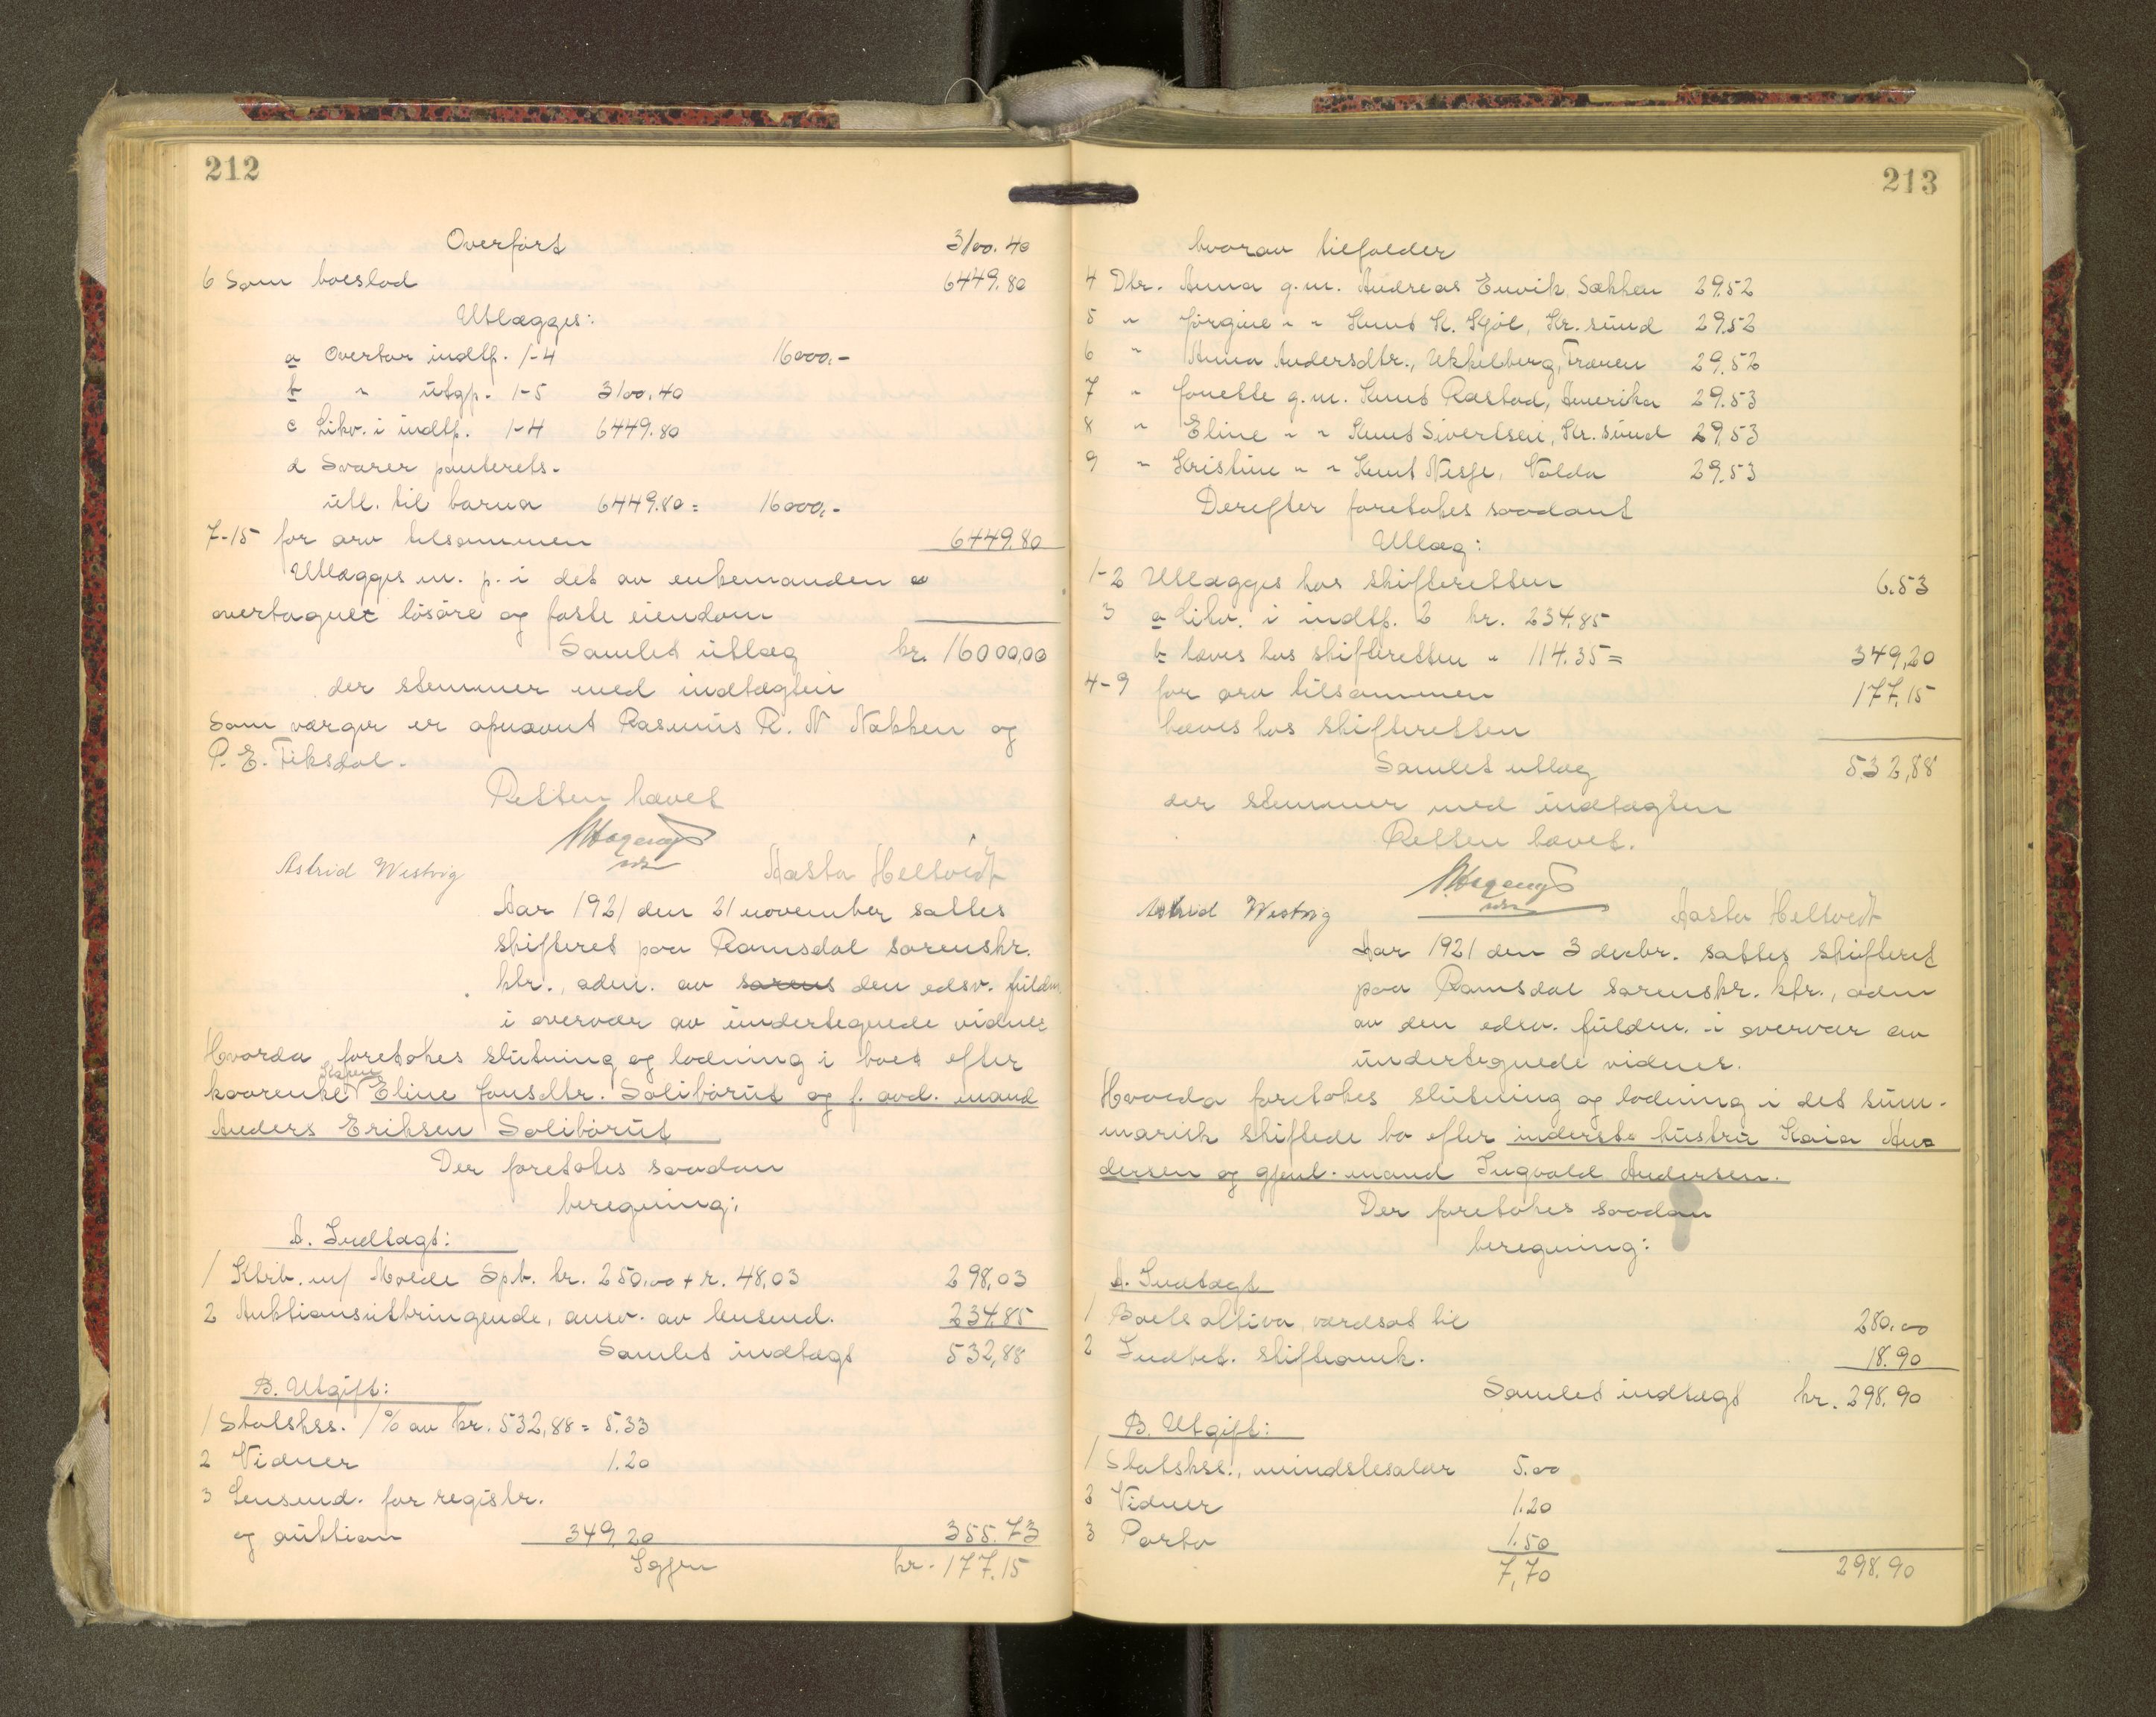 212
Overført 3100.40
6 Som boeslod 6449.80
Utlægges:
a Overtar indtp. 1-4 16000,-
b " utgp. 1-5 3100.40
c Likv. i indtp. 1-4 6449.80
d Svarer panterets-
utl. til barna 6449.80 = 16000,-
7-15 for arv tilsammen 6449.80
Utlægges m. p. i det av enkemanden
overtagne løsøre og faste eiendom
Samlet utlæg kr. 16000,00
der stemmer med indtægten
Som værger er opnævnt Rasmus R. N Nakken og
P. E. Fiksdal.
Retten hævet
Astrid Westvig Aasta Heltvedt
Aar 1921 den 21 november sattes
skifteret paa Romsdal sorenskr.
ktr., adm. av sorens den edsv. fuldm.
i overvær av undertegnede vidner
Hvorda foretokes slutning og lodning i boet efter
kaarenke Eline Jonsdtr. Solibørut og f. avd. mand
Anders Eriksen Solibørut
Der foretokes saadan
beregning:
A. Indtægt:
1 Ktrb. m/ Molde Spb. kr. 250,00 + r. 48,03 298,03
2 Auktionsutbringende, ansv. av lensmd. 234.85
Samlet indtægt 532,88
B. Utgift:
1 Statskss. 1% av kr. 532,88 = 5.33
2 Vidner 1.20
3 Lensmd. for registr.
og auktion 349,20 355.73
Igjen kr. 177.15
213
hvorav tilfalder
4 Dtr. Anna g.m. Andreas Envik, Sækken 29.52
5 " Jørgine " " Knut K. Kjøl, Kr.sund 29.52
6 " Anna Andersdtr., Ukkelberg, Frænen 29.52
7 " Jonette g.m. Knut Røstad, Amerika 29.53
8 " Eline " " Knut Sivertsen, Kr.sund 29.53
9 " Kristine " " Knut Nesje, Volda 29.53
Derefter foretokes saadant
Utlæg:
1-2 Utlægges hos skifteretten 6.53
3 a Likv. i indtp. 2 kr. 234,85
b hæves hos skifteretten " 114.35 = 349,20
4-9 for arv tilsammen 177.15
hæves hos skifteretten
Samlet utlæg 532,88
der stemmer med indtægten
Retten hævet.
Astrid Westvig Aasta Heltvedt
Aar 1921 den 3 decbr. sattes skifteret
paa Romsdal sorenskr. ktr., adm
av den edsv. fuldm. i overvær av
undertegnede vidner.
Hvorda foretokes slutning og lodning i det sum-
marisk skiftede bo efter inderste hustru Kaia An-
dersen og gjenl. mand Ingvald Andersen.
Der foretokes saadan
beregning:
A. Indtægt
1 Boets aktiva, værdsat til 280.00
2 Indbet. skifteomk. 18.90
Samlet indtægt kr. 298.90
B. Utgift:
1 Statskss., mindstesalær 5.00
2 Vidner 1.20
3 Porto 1.50
7,70 298.90